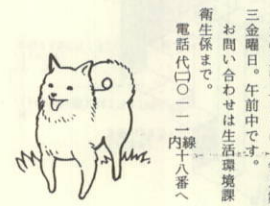 三金曜日。午前中です。
お問い合わせは生活環境課
衛生係まで。
電話 代□〇一一一 内線十八番へ